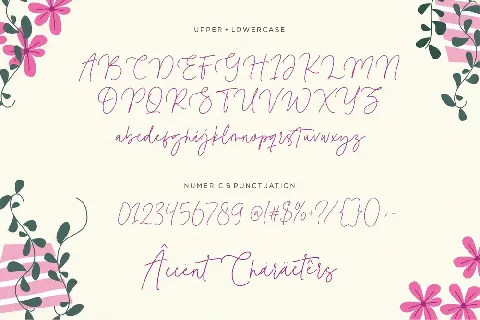 UPPER + LOWERCASE
ABCDEFGHIJKLMN
OPQRSTUVWXYZ
abcdefghijklmnopqrstuvwxyz
NUMERIC & PUNCTUATION
0123456789 @!#$%+?/{}()--
Âccent Charäctêrs